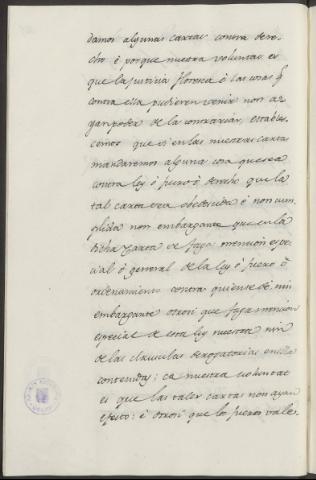 damos algunas cartas contra dere-
cho é porque nuestra voluntad es
que la justicia floresca é las cosas q̃
contra ella pudieren venir non ay
gan poder de la contrariar, establece-
cemos que si en las nuestras cartas
mandaremos alguna cosa que sea
contra ley ó fuero ó derecho que la
tal carta sea obedecida é non cum-
plida non embargante que en la
dicha carta se faga mencion espe-
cial ó general de la ley ó fuero ó
ordenamiento contra quien se dé nin
embargante otrosi que faga mencion
especial de esta ley nuestra nin
de las clausulas derogatorias en ella
contenidas: ca nuestra voluntat
es que las tales cartas non ayan
efecto: é otrosi que los fueros vale-